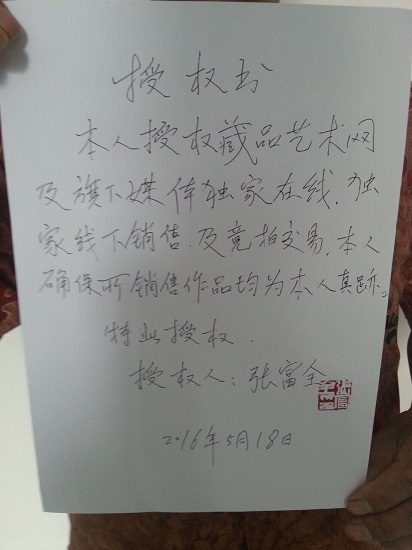 授权书
本人授权藏品艺术网
及旗下媒体独家在线、独
家线下销售、及竞拍交易，本人
确保所销售作品均为本人真跡。
特此授权．
授权人：张富全
2016年5月18日